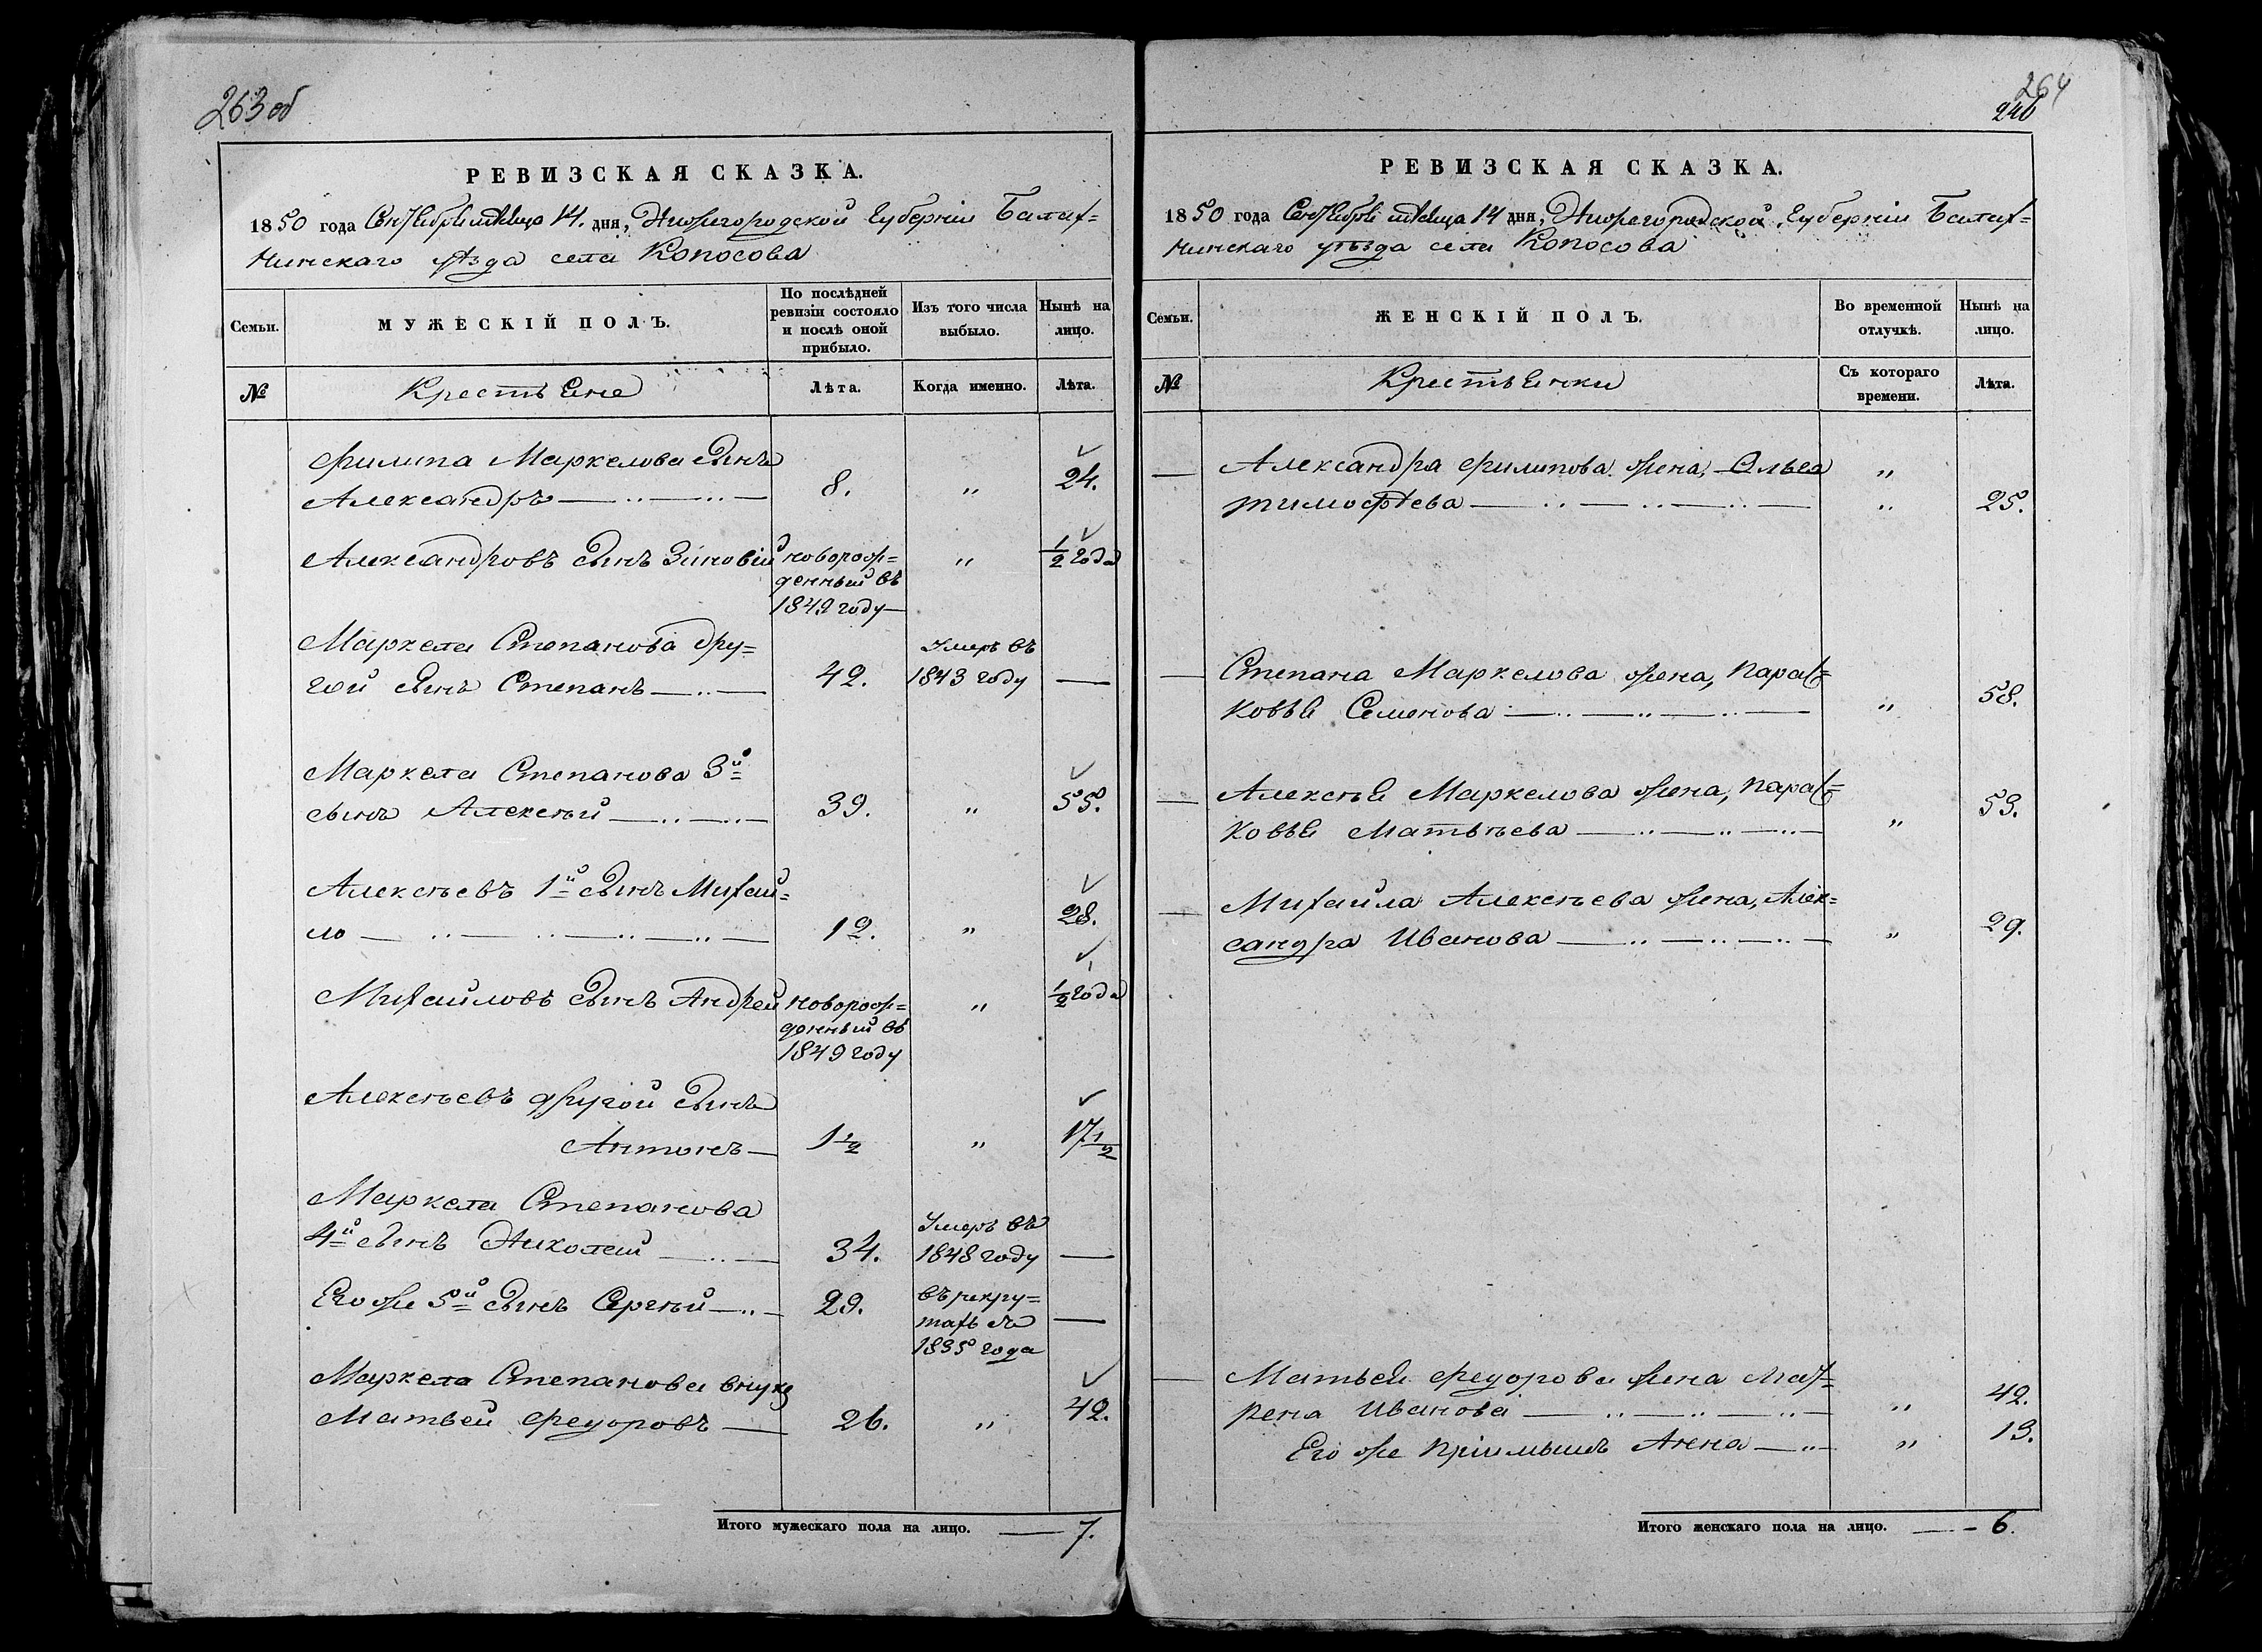 263 об
РЕВИЗСКАЯ СКАЗКА.
1850 года Сентября мѣсяца 14. дня, Нижегородской Губерніи Балах=
нинскаго уѣзда села Копосова
Семьи.
МУЖЕСКІЙ ПОЛЪ.
По послѣдней ревизіи состояло и послѣ оной прибыло.
Изъ того числа выбыло.
Нынѣ на лицо.
№
Крестьяне
Лѣта.
Когда именно.
Лѣта.
Филипа Маркелова сынъ
Александръ — 8. „ 24.
Александровъ сынъ Зиновій новорож=
денный въ
1849 году — „ ½ года
Маркела Степанова дру=
гой сынъ Степанъ — 42. Умеръ въ
1843 году —
Маркела Степанова 3й
сынъ Алексѣй — 39. „ 55.
Алексѣевъ 1й сынъ Михай=
ло — 12. „ 28.
Михайловъ сынъ Андрей новорож=
денный въ
1849 году „ ½ года
Алексѣевъ другой сынъ
Антонъ — 1½ „ 17½
Маркела Степанова
4й сынъ Николай — 34. Умеръ въ
1848 году —
Его же 5й сынъ Сергѣй — 29. въ рекру=
тахъ съ
1835 года —
Маркела Степанова внукъ
Матвей Федоровъ — 26. „ 42.
Итого мужескаго пола на лицо. — 7.
264
240
РЕВИЗСКАЯ СКАЗКА.
1850 года Сентября мѣсяца 14 дня, Нижегородской Губерніи Балах=
нинскаго уѣзда села Копосова
Семьи.
ЖЕНСКІЙ ПОЛЪ.
Во временной отлучкѣ.
Нынѣ на лицо.
№
Крестьянки
Съ котораго времени.
Лѣта.
— Александра Филипова жена, Ольга „
Тимофѣева — „ 25.
— Степана Маркелова жена, Парас=
ковья Семенова — „ 58.
— Алексѣя Маркелова жена, Парас=
ковья Матвѣева — „ 53.
— Михайла Алексѣева жена, Алек=
сандра Иванова — „ 29.
— Матвея Федорова жена Мат=
рена Иванова — „ 42.
Его же пріимышъ Анна — „ 13.
Итого женскаго пола на лицо. — 6.